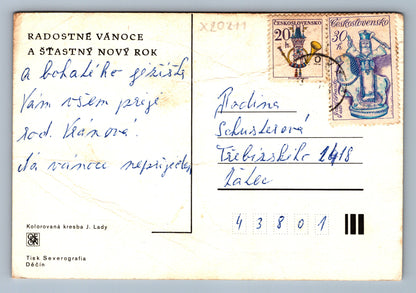 RADOSTNÉ VÁNOCE
A ŠŤASTNÝ NOVÝ ROK
a bohatého ježíška
Vám všem přeje
rod. Vránová.
Na vánoce nepřijedem
Kolorovaná kresba J. Lady
Tisk Severografia
Děčín
X20211
ČESKOSLOVENSKO
20 h
Československo
30 h
Rodina
Schusterová
Třebízského 2418
Žatec
43801